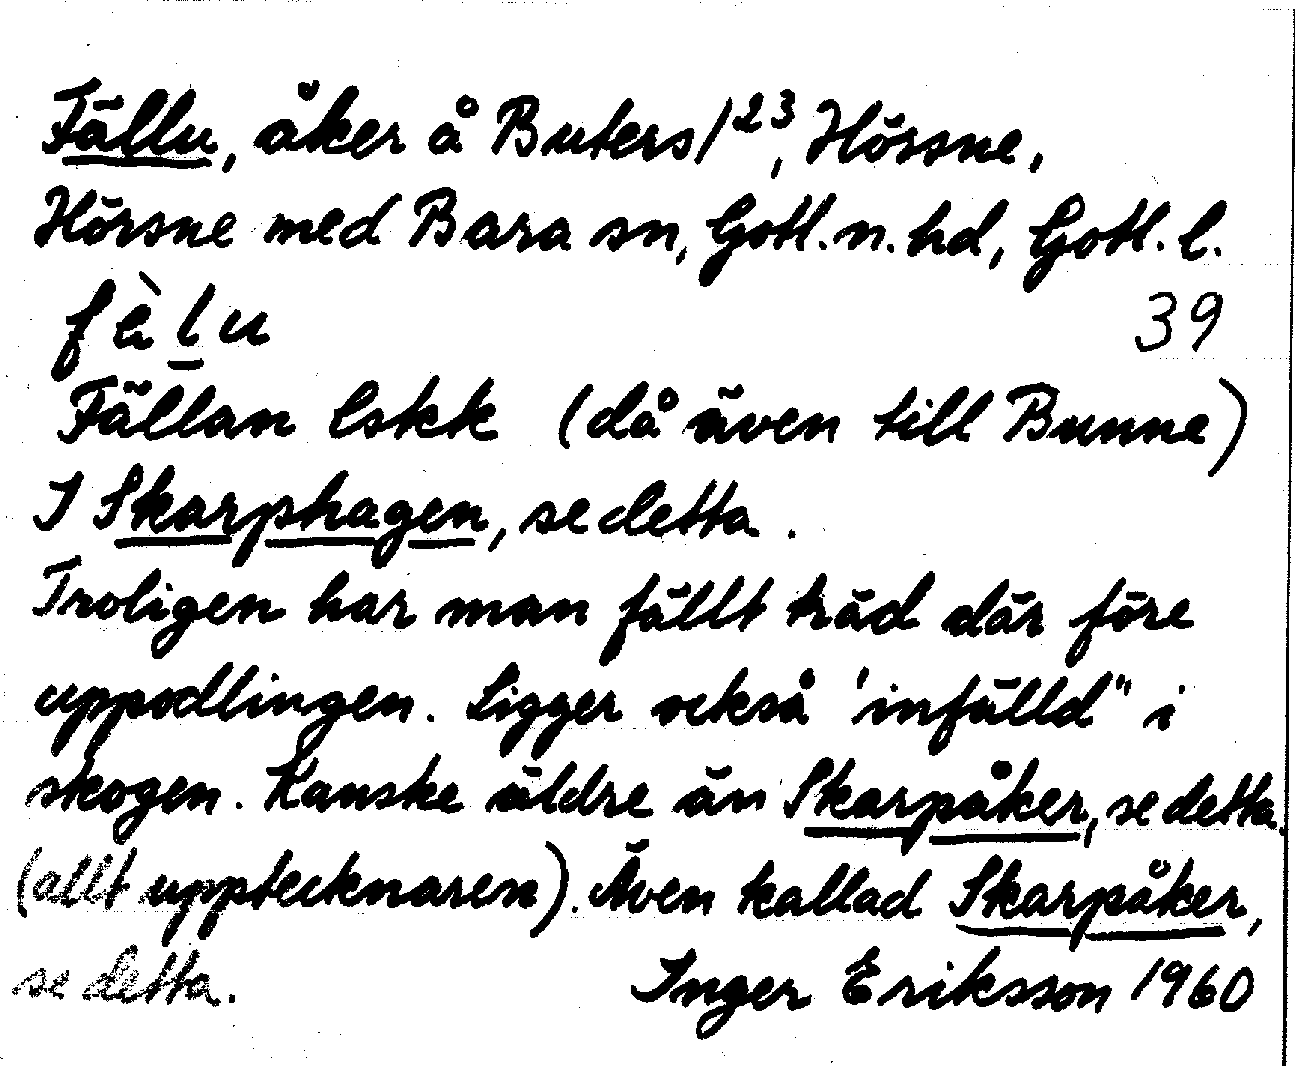 Fällu, åker å Buters 1²³, Hörsne,
Hörsne med Bara sn, Gotl. n. hd, Gotl. l.
fèlu 39
Fällan Eskk (då även till Bunne)
I Skarphagen, se detta.
Troligen har man fällt träd där före
uppodlingen. Ligger också 'infälld" i
skogen. Kanske äldre än Skarpåker, se detta.
(allt upptecknaren). Även kallad Skarpåker,
se detta. Inger Eriksson 1960